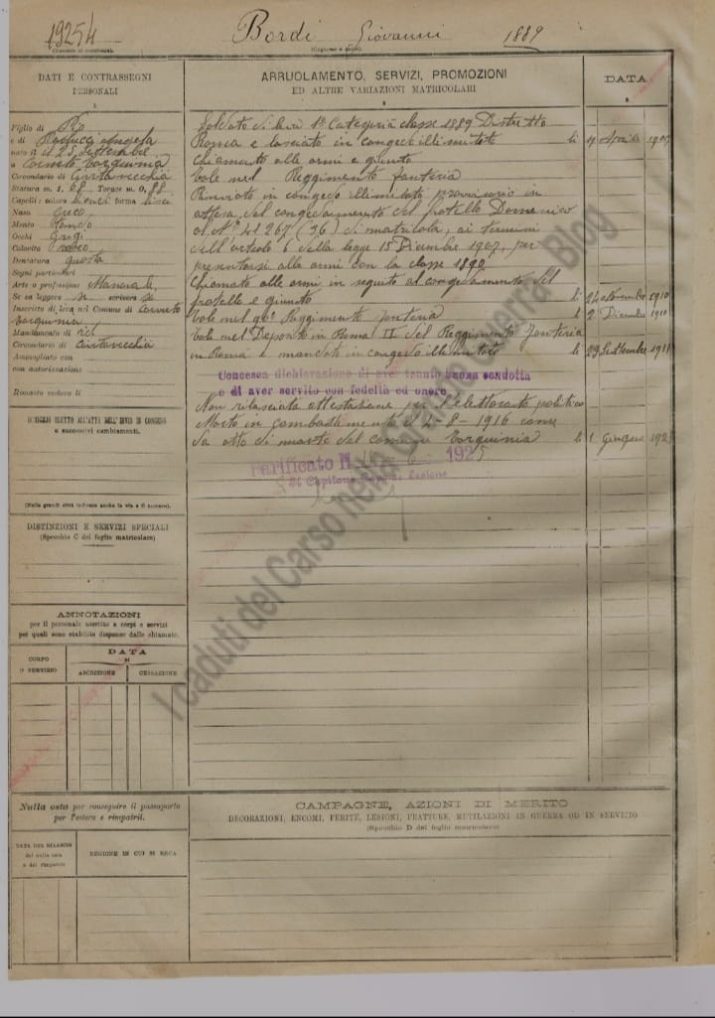 19254 Bordi Giovanni 1889
DATI E CONTRASSEGNI
PERSONALI
Figlio di Pio
e di Angela
nato il 25 Settembre
a Corneto Tarquinia
Circondario di Civitavecchia
Statura m. 1, 68 Torace m. 0, 88
Capelli: colore forma liscia
Naso Greco
Mento Tondo
Occhi Grigi
Colorito roseo
Dentatura guasta
Segni particolari
Arte o professione Manovale
Se sa leggere si scrivere si
Inscritto di leva nel Comune di Corneto
Tarquinia
Mandamento di id
Circondario di Civitavecchia
Ammogliato con
con autorizzazione
Rimasto vedovo li
DOMICILIO ELETTO ALL'ATTO DELL'INVIO IN CONGEDO
e successivi cambiamenti.
(Nelle grandi città indicare anche la via e il numero).
DISTINZIONI E SERVIZI SPECIALI
(Specchio C del foglio matricolare)
ANNOTAZIONI
per il personale ascritto a corpi o servizi
pei quali sono stabilite dispense dalle chiamate.
CORPO
O SERVIZIO
DATA
DI
ASCRIZIONE
CESSAZIONE
Nulla osta per conseguire il passaporto
per l'estero e rimpatrii.
DATA DEL RILASCIO
del nulla osta
e del rimpatrio
REGIONE IN CUI SI RECA
ARRUOLAMENTO, SERVIZI, PROMOZIONI
ED ALTRE VARIAZIONI MATRICOLARI
DATA
Soldato di leva 1ª Categoria classe 1889 Distretto
Roma e lasciato in congedo illimitato li 4 Aprile 1909
Chiamato alle armi e giunto
Tale nel Reggimento fanteria
in congedo illimitato provvisorio in
attesa del congedamento del fratello Domenico
al Nº 41267 (36) di matricola, ai termini
dell'articolo 6 della legge 15 Dicembre 1907, per
presentarsi alle armi con la classe 1890
Chiamato alle armi in seguito al congedamento del
fratello e giunto li 24 Novembre 1910
Tale nel 90º Reggimento fanteria li 2 Dicembre 1910
Tale nel Deposito in Roma II del Reggimento Fanteria
in Roma e mandato in congedo illimitato li 29 Settembre 1911
Concessa dichiarazione di aver tenuto buona condotta
e di aver servito con fedeltà ed onore
Non rilasciata attestazione per l'elettorato politico
Morto in combattimento il 4-8-1916 come
da atto di morte del comune Tarquinia li 1 Giugno
Parificato 1925
Il Capitano Sezione
CAMPAGNE, AZIONI DI MERITO
DECORAZIONI, ENCOMI, FERITE, LESIONI, FRATTURE, MUTILAZIONI IN GUERRA OD IN SERVIZIO
(Specchio D del foglio matricolare)
I caduti del Carso nella Grande Guerra - Blog